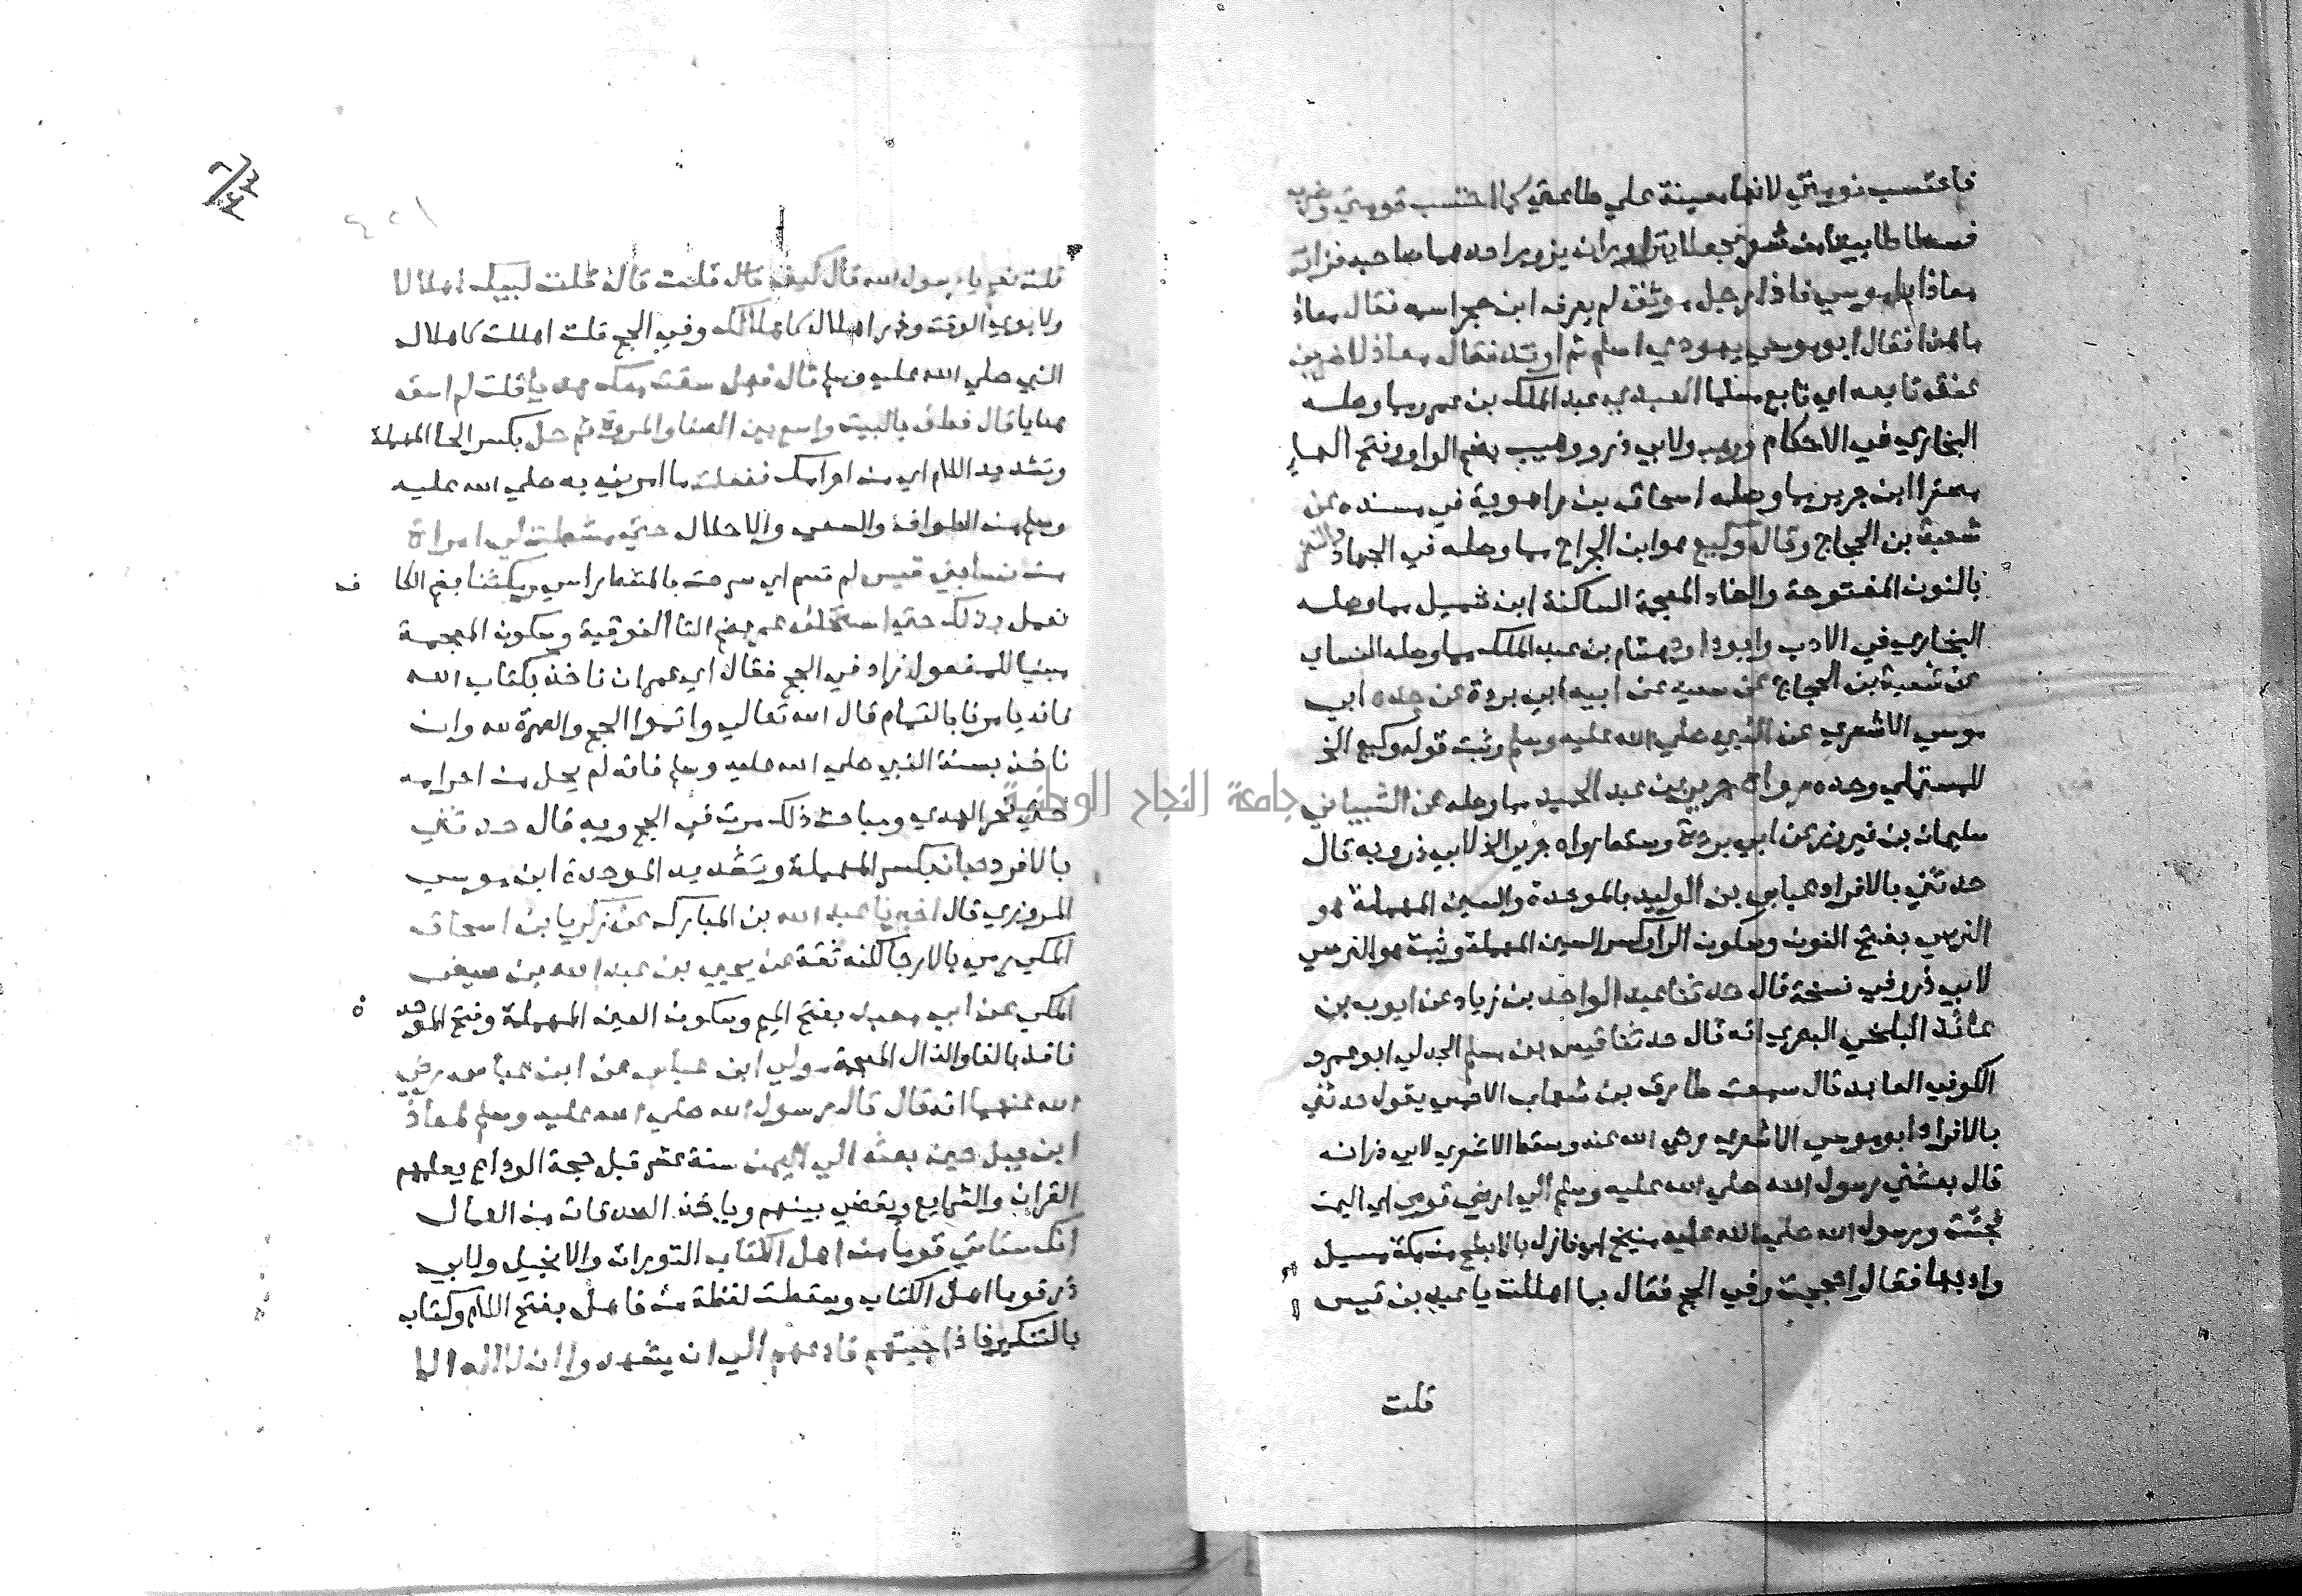 فاحتسب نومتي لانها معينة علي طاعتي كما احتسب قومتي وضرب
فسطاطا بيتا من شعر فجعلا يتزاوران يزور احدهما صاحبه فزار
معاذ ابا موسي فاذا رجل موثق لم يعرف ابن حجر اسمه فقال معاذ
ما هذا فقال ابو موسي يهودي اسلم ثم ارتد فقال معاذ لاضربن
عنقه تابعه اي تابع مسلما العقدي عبد الملك بن عمرو مما وصله
البخاري في الاحكام ووهب ولابي ذر ووهيب بضم الواو وفتح الهاء
مصغرا ابن جرير مما وصله اسحاق بن راهوية في مسنده عن
شعبة بن الحجاج وقال وكيع هو ابن الجراح مما وصله في الجهاد والنضر
بالنون المفتوحة والضاد المعجمة الساكنة ابن شميل مما وصله
البخاري في الادب وابو داود هشام بن عبد الملك مما وصله النساي
عن شعبة بن الحجاج عن سعيد عن ابيه ابي بردة عن جده ابي
موسي الاشعري عن النبي صلي الله عليه وسلم وثبت قوله وكيع الخ
للمستملي وحده رواه جرير بن عبد الحميد مما وصله عن الشيباني
سليمان بن فيروز عن ابي بردة وسقط رواه جرير الخ لابي ذر وبه قال
حدثني بالافراد عباس بن الوليد بالموحدة والسين المهملة هو
النرسي بفتح النون وسكون الرا وكسر السين المهملة وثبت هو النرسي
لابي ذر وفي نسخة قال حدثنا عبد الواحد بن زياد عن ايوب بن
عائذ البلخي البصري انه قال حدثنا قيس بن مسلم الجدلي ابو عمرو
الكوفي العابد قال سمعت طارق بن شهاب الاحمسي يقول حدثني
بالافراد ابو موسي الاشعري رضي الله عنه وسقط الاشعري لابي ذر انه
قال بعثني رسول الله صلي الله عليه وسلم الي ارض قومي اي اليمن
فجئت ورسول الله صلي الله عليه منيخ اي نازل بالابطح من مكة مسيل
واديها فقال احججت وفي الحج فقال بما اهللت يا عبد الله بن قيس
قلت
قلت نعم يا رسول الله قال كيف قال قلت قال قلت لبيك اهلالا
ولابوي الوقت وذر اهلال كاهلالك وفي الحج قلت اهللت كاهلال
النبي صلي الله عليه وسلم قال فهل سقت معك هديا قلت لم اسق
هديا قال فطف بالبيت واسع بين الصفا والمروة ثم حل بكسر الحا المهملة
وتشديد اللام اي من احرامك ففعلت ما امرني به صلي الله عليه
وسلم من الطواف والسعي والاحلال حتي مشطت لي امراة
من نسا بني قيس لم تسم اي سرحت بالمشط راسي ومكثنا بضم الكاف
نعمل بذلك حتي استخلف عمر بضم التا الفوقية وسكون المعجمة
مبنيا للمفعول زاد في الحج فقال اي عمر ان ناخذ بكتاب الله
فانه يامرنا بالتمام قال الله تعالي واتموا الحج والعمرة لله وان
ناخذ بسنة النبي صلي الله عليه وسلم فانه لم يحل من احرامه
حتي نحر الهدي ومباحث ذلك مرت في الحج وبه قال حدثني
بالافرد حبان بكسر المهملة وتشديد الموحدة ابن موسي
المروزي قال اخبرنا عبد الله بن المبارك عن زكريا بن اسحاق
المكي رمي بالارجا لكنه ثقة عن يحيي بن عبد الله بن صيفي
المكي عن ابي معبد بفتح الميم وسكون العين المهملة وفتح الموحدة
نافذ بالفا والذال المعجمة مولي ابن عباس عن ابن عباس رضي
الله عنهما انه قال قال رسول الله صلي الله عليه وسلم لمعاذ
ابن جبل حين بعثه الي اليمن سنة عشر قبل حجة الوداع يعلمهم
القران والشرايع ويقضي بينهم وياخذ الصدقات من العمال
انك ستاتي قوما من اهل الكتاب التوراة والانجيل ولابي
ذر قوما اهل الكتاب وسقطت لفظة من فاهل بفتح اللام وكتاب
بالتنكير فاذا جيتهم فادعهم الي ان يشهدوا ان لا اله الا
جامعة النجاح الوطنية